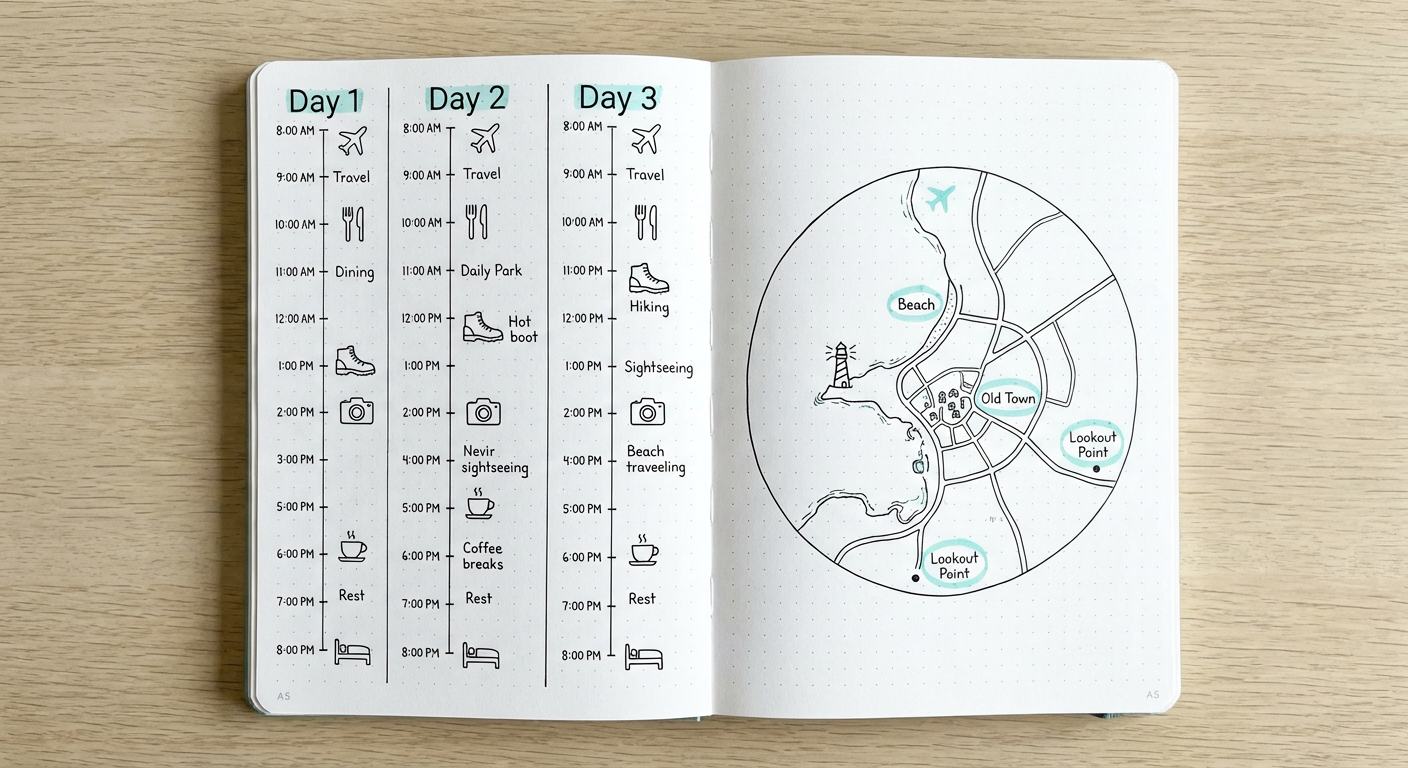 Day 1
8:00 AM
9:00 AM Travel
10:00 AM
11:00 AM Dining
12:00 AM
1:00 PM
2:00 PM
3:00 PM
5:00 PM
6:00 PM
7:00 PM Rest
8:00 PM
Day 2
8:00 AM
9:00 AM Travel
10:00 AM
11:00 AM Daily Park
12:00 PM Hot
boot
1:00 PM
2:00 PM
4:00 PM Nevir
sightseeing
5:00 PM
6:00 PM Coffee
breaks
7:00 PM Rest
8:00 PM
Day 3
8:00 AM
9:00 AM Travel
10:00 AM
11:00 PM
Hiking
12:00 PM
1:00 PM Sightseeing
2:00 PM
4:00 PM Beach
traveeling
5:00 PM
6:00 PM
7:00 PM Rest
8:00 PM
AS
Beach
Old Town
Lookout
Point
Lookout
Point
AS